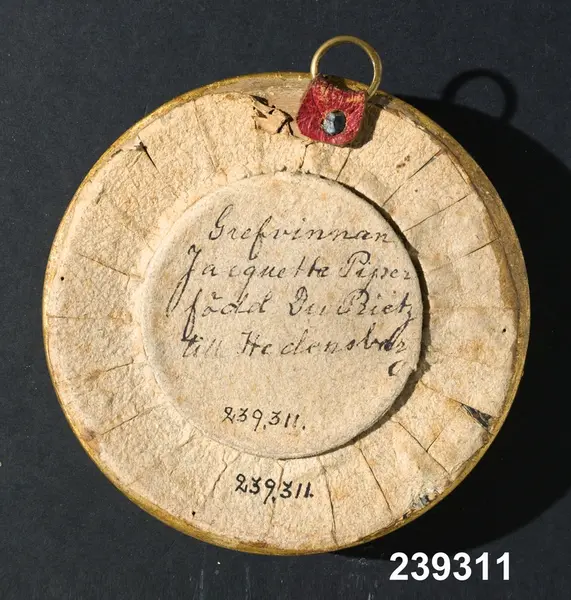 Grefvinnan
Jacquette Piper
född Du Rietz
till Hedensberg
239,311.
239,311.
239311